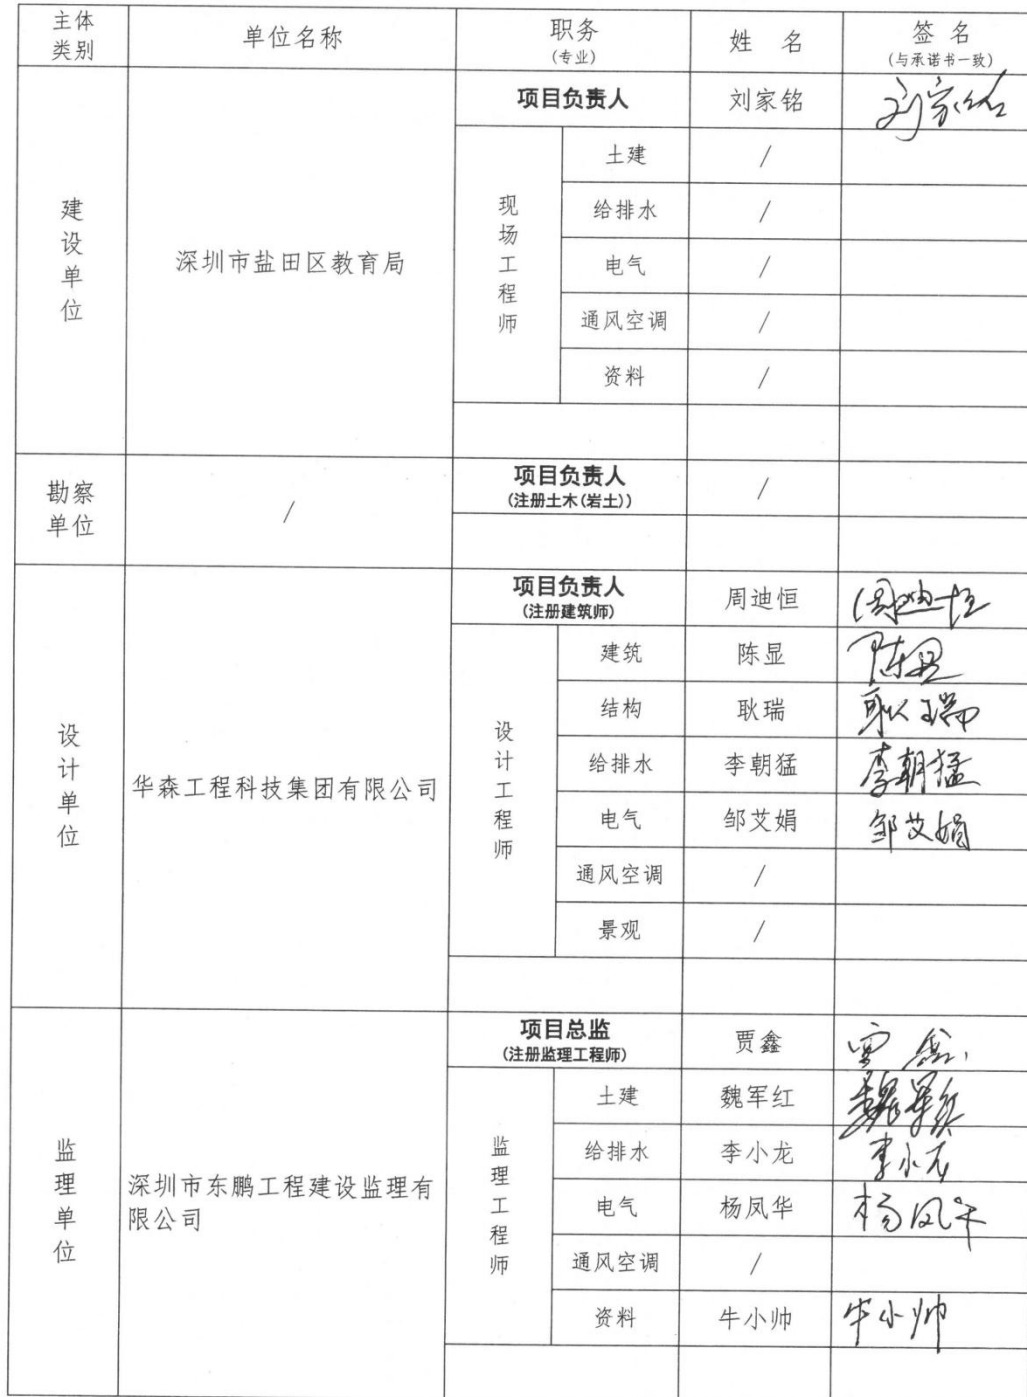 主体类别 单位名称 职务(专业) 姓 名 签 名(与承诺书一致)
建设单位 深圳市盐田区教育局 项目负责人 刘家铭 刘家铭
现场工程师 土建 /
给排水 /
电气 /
通风空调 /
资料 /
勘察单位 / 项目负责人(注册土木(岩土)) /
设计单位 华森工程科技集团有限公司 项目负责人(注册建筑师) 周迪恒 周迪恒
设计工程师 建筑 陈显 陈显
结构 耿瑞 耿瑞
给排水 李朝猛 李朝猛
电气 邹艾娟 邹艾娟
通风空调 /
景观 /
监理单位 深圳市东鹏工程建设监理有限公司 项目总监(注册监理工程师) 贾鑫 贾鑫
监理工程师 土建 魏军红 魏军红
给排水 李小龙 李小龙
电气 杨凤华 杨凤华
通风空调 /
资料 牛小帅 牛小帅